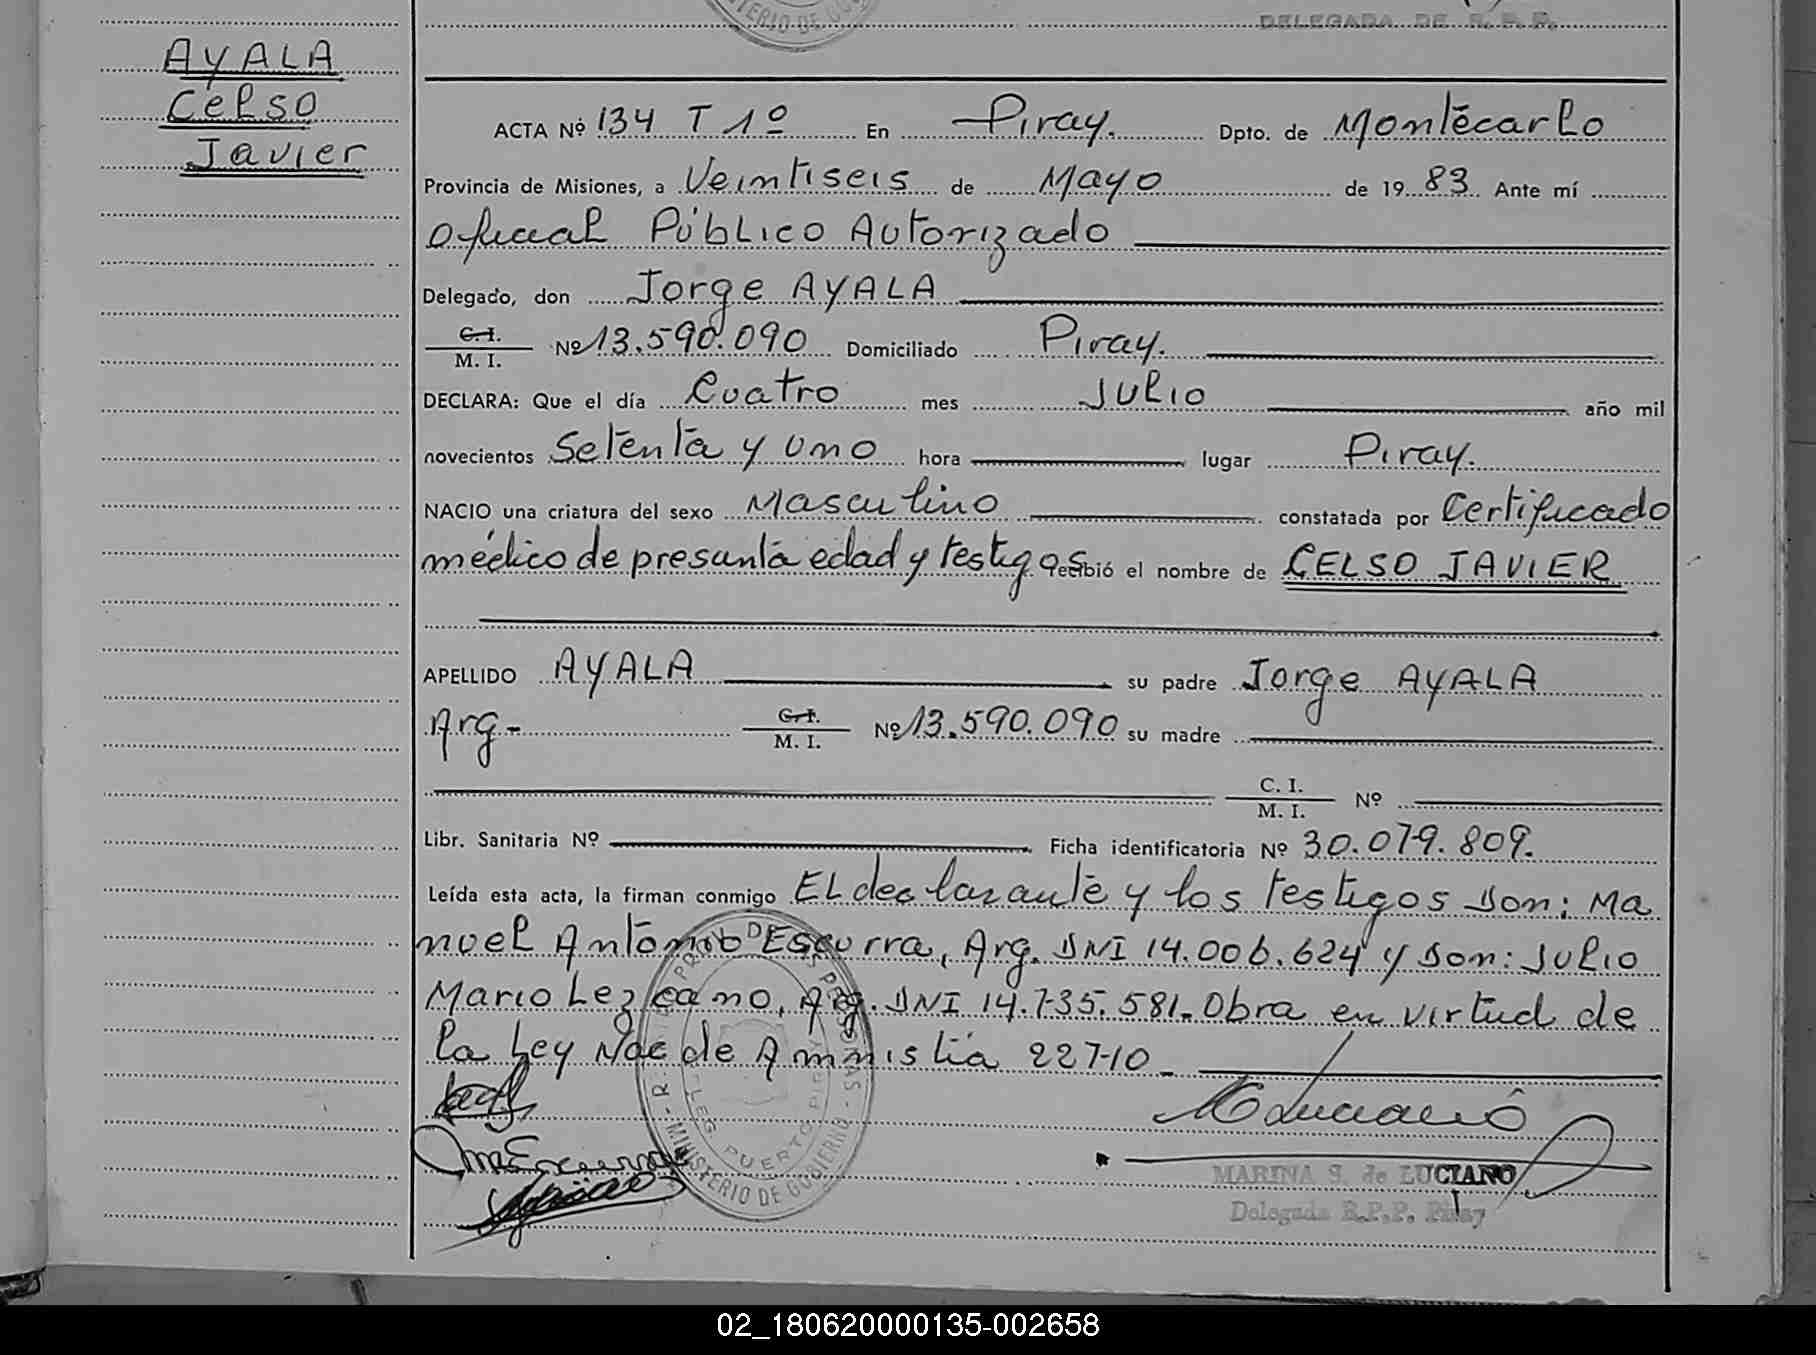 MINISTERIO DE GOB
DELEGADA DE R. P. P.
AYALA
Celso
Javier
ACTA Nº 134 T 1º En Piray. Dpto. de Montecarlo
Provincia de Misiones, a Veintiseis de Mayo de 19 83 Ante mí
Oficial Público Autorizado
Delegado, don Jorge AYALA
C. I.
M. I. Nº 13.590.090 Domiciliado Piray.
DECLARA: Que el día Cuatro mes Julio año mil
novecientos Setenta y Uno hora lugar Piray.
NACIO una criatura del sexo Masculino constatada por Certificado
médico de presunta edad y testigos recibió el nombre de CELSO JAVIER
APELLIDO AYALA su padre Jorge AYALA
Arg- C. I.
M. I. Nº 13.590.090 su madre
C. I.
M. I. Nº
Libr. Sanitaria Nº Ficha identificatoria Nº 30.079.809.
Leída esta acta, la firman conmigo El declarante y los testigos Don: Ma
nuel Antonio Escurra, Arg. DNI 14.006.624 y Don: Julio
Mario Lezcano, Arg. DNI 14.735.581. Obra en virtud de
la Ley Nac de Amnistia 22710
MINISTERIO DE GOBIERNO
PUERTO PIRAY
MLuciano
MARINA S. de LUCIANO
Delegada R.P.P. Piray
02_180620000135-002658